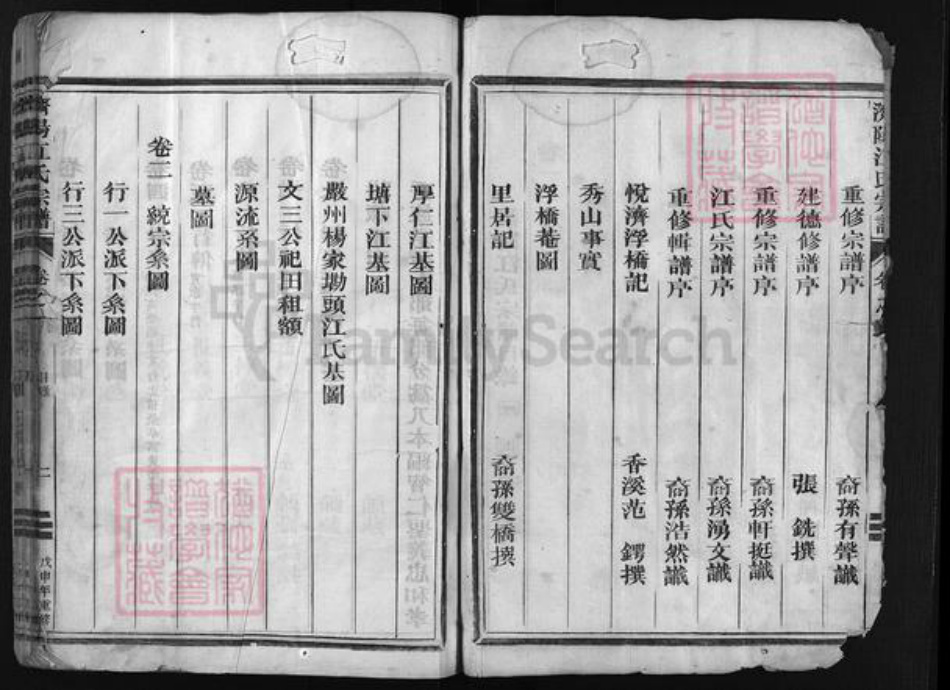 重修宗譜序 裔孫有聲識
建德修譜序 張 銑撰
重修宗譜序 裔孫軒挺識
江氏宗譜序 裔孫湧文識
重修輯譜序 裔孫浩然識
悅濟浮橋記 香溪范 鍔撰
秀山事實
浮橋菴圖
里居記 裔孫雙橋撰
厚仁江基圖
塘下江基圖
嚴州楊家塴頭江氏基圖
文三公祀田租額
源流系圖
墓圖
卷二 統宗系圖
行一公派下系圖
行三公派下系圖
濟陽江氏宗譜 卷之一 目錄 二 戊申年重修
FamilySearch